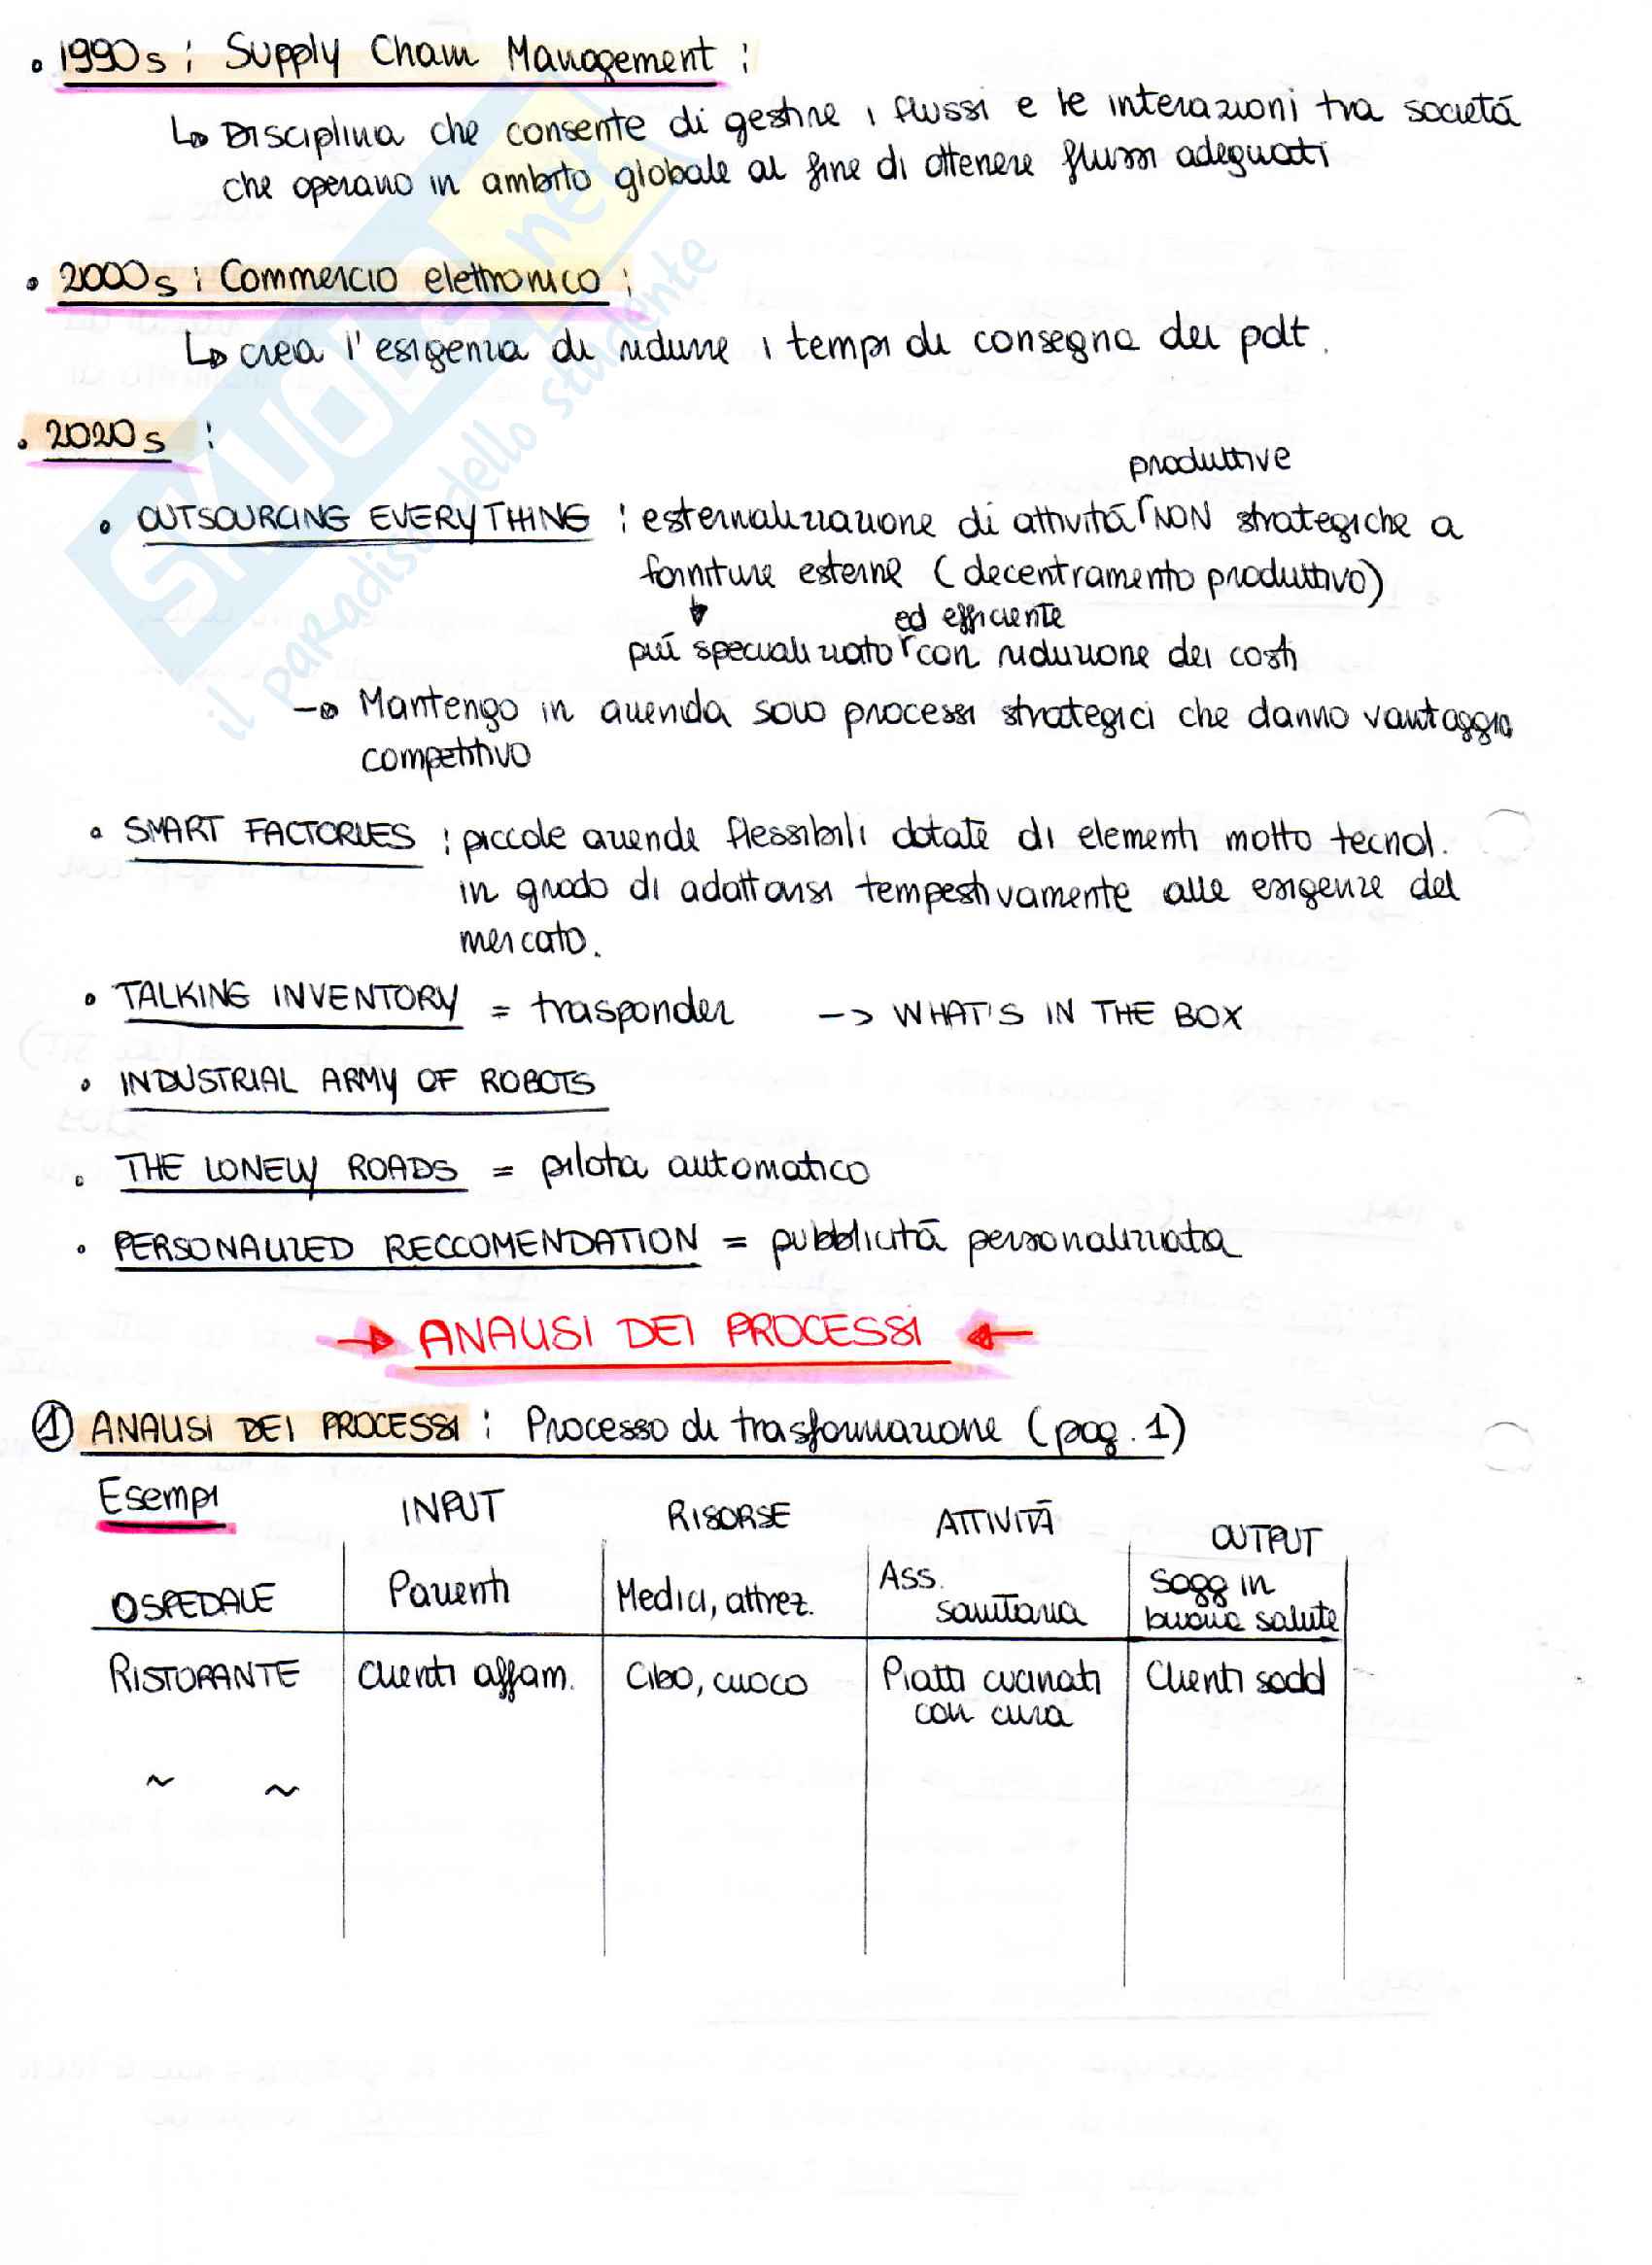 • 1990s : Supply Chain Management :
↳ Disciplina che consente di gestire i flussi e le interazioni tra società
che operano in ambito globale al fine di ottenere flussi adeguati
• 2000s : Commercio elettronico :
↳ crea l'esigenza di ridurre i tempi di consegna dei pdt.
• 2020s :
produttive
• OUTSOURCING EVERYTHING : esternalizzazione di attività NON strategiche a
forniture esterne (decentramento produttivo)
ed efficiente
più specializzato con riduzione dei costi
→ Mantengo in azienda solo processi strategici che danno vantaggio
competitivo
• SMART FACTORIES : piccole aziende flessibili dotate di elementi molto tecnol.
in grado di adattarsi tempestivamente alle esigenze del
mercato.
• TALKING INVENTORY = trasponder -> WHAT'S IN THE BOX
• INDUSTRIAL ARMY OF ROBOTS
• THE LONELY ROADS = pilota automatico
• PERSONALIZED RECCOMENDATION = pubblicità personalizzata
→ ANALISI DEI PROCESSI ←
① ANALISI DEI PROCESSI : Processo di trasformazione (pag. 1)
Esempi INPUT RISORSE ATTIVITÀ OUTPUT
OSPEDALE Pazienti Medici, attrez. Ass. sanitaria Sogg in buona salute
RISTORANTE Clienti affam. Cibo, cuoco Piatti cucinati con cura Clienti sodd
~ ~
SKUOLA.net
il paradiso dello studente